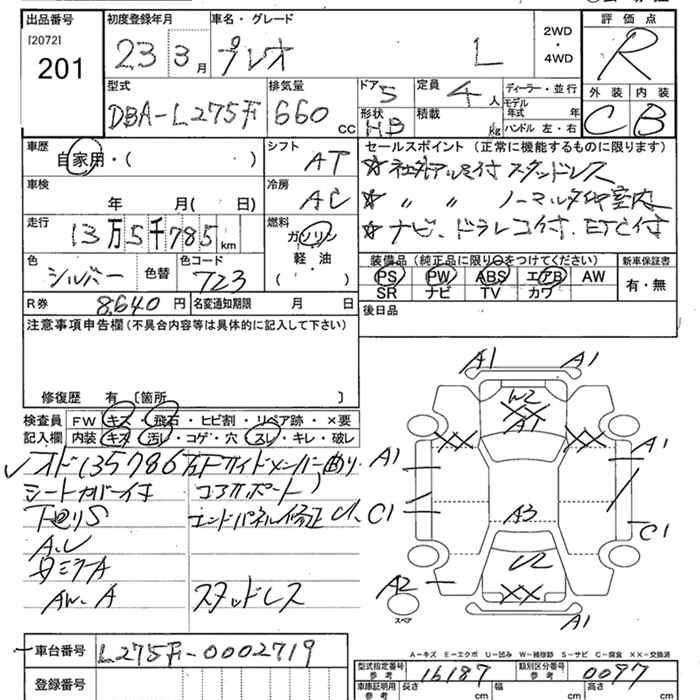 出品番号 初度登録年月 車名・グレード 評価点
[2072]
201 23 3月 プレオ L 2WD・4WD R
型式 排気量 ドア 5 定員 4人 ディーラー・並行 外装 内装
DBA-L275F 660cc 形状 HB 積載 kg モデル年式 年 C B
ハンドル 左・右
車歴 自家用・( ) シフト AT セールスポイント(正常に機能するものに限ります)
☆社外アルミ付スタッドレス
車検 年 月( 日) 冷房 AC ☆ 〃 〃 ノーマルタイヤ室内
走行 13万5千785km 燃料 ガソリン ☆ナビ、ドラレコ付、ETC付
軽・油
( )
色 シルバー 色替 色コード 723 装備品(純正品に限り○をつけてください) 新車保証書
PS PW ABS エアB AW 有・無
SR ナビ TV カワ
R券 8,640円 名変通知期限 月 日 後日品
注意事項申告欄(不具合内容等は具体的に記入して下さい)
修復歴 有 〔箇所 〕
検査員 FW キズ・飛石・ヒビ割・リペア跡・×要
記入欄 内装 キズ・汚レ・コゲ・穴・スレ・キレ・破レ
オド135786 サイドメンバー曲り
シートカバー付 コアサポート
下廻りS エンドパネル修正
A.U
AW.A スタッドレス
A1 A1
W2
XX
A1
XX XX
A1 A1
C1 A3 C1
U2
A2 XX
スペア A1
A-キズ E-エクボ U-凹み W-補修跡 S-サビ C-腐食 XX-交換済
車台番号 L275F-0002719
登録番号
型式指定番号 参考 16187 類別区分番号 参考 0097
車庫証明用 参考 長さ cm 幅 cm 高さ cm